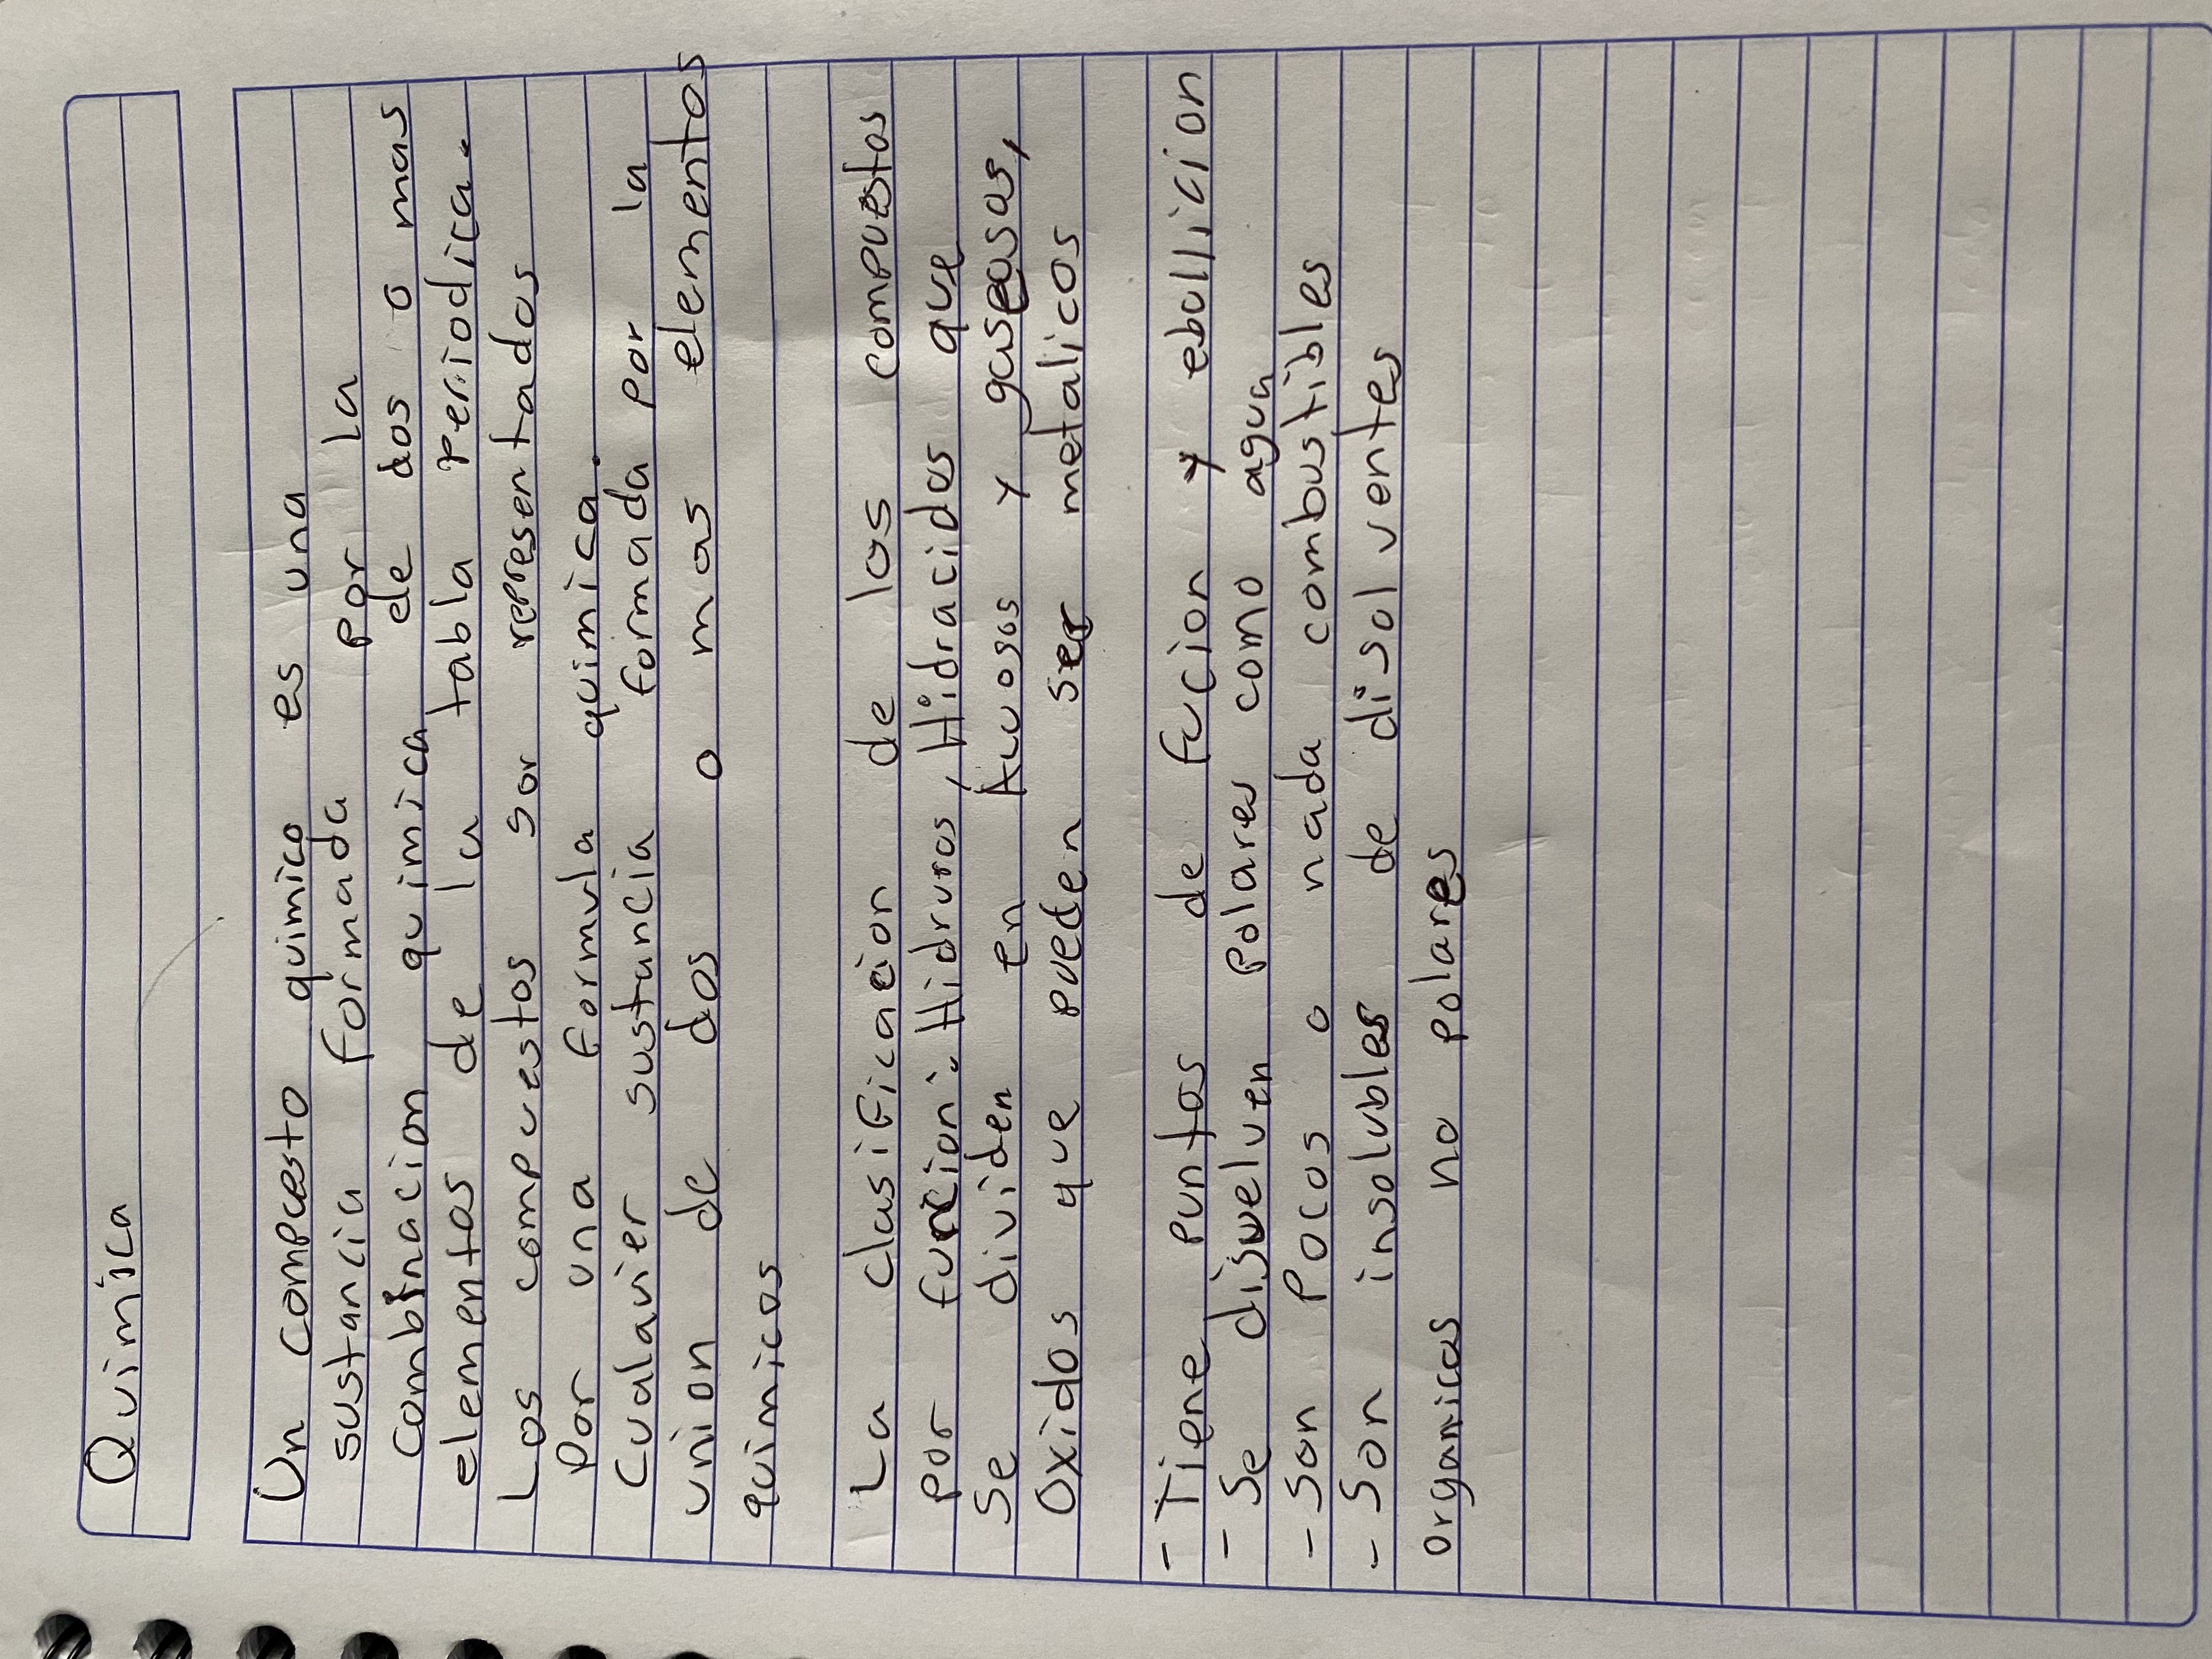 Quimica
Un compuesto quimico es una
sustancia formada por la
combinacion quimica de dos o mas
elementos de la tabla periodica.
Los compuestos son representados
por una formula quimica.
Cualquier sustancia formada por la
union de dos o mas elementos
quimicos
La clasificacion de los compuestos
por funcion: Hidruros, Hidracidos que
se dividen en Acuosos y gaseosas,
Oxidos que pueden ser metalicos
- Tiene puntos de fucion y ebollicion
- Se disuelven Polares como agua
- Son Pocos o nada combustibles
- Son insolubles de disolventes
organicos no polares